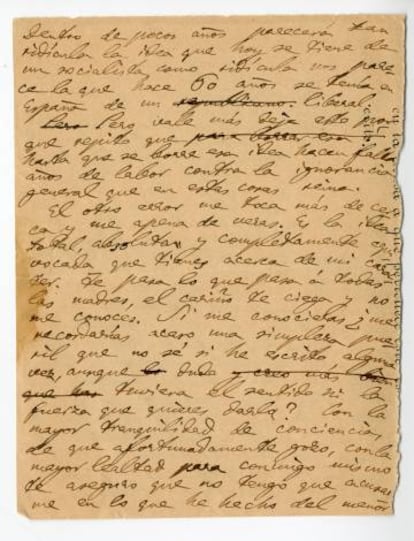 Dentro de pocos años parecerá tan
ridícula la idea que hoy se tiene de
un socialista como ridícula nos pare-
ce la que hace 60 años se tenía en
España de un republicano. liberal.
Pero Pero vale más deje esto por
que repito que para borrar con
hasta que se borre esa idea hacen falta
años de labor contra la ignorancia
general que en estas cosas reina.
El otro error me toca más de cer-
ca y me apena de veras. Es la idea
total, absoluta y completamente equi-
vocada que tienes acerca de mi carác-
ter. Te pasa lo que pasa á todas
las madres, el cariño te ciega y no
me conoces. Si me conocieras ¿me
recordarías acaso una simpleza pue-
ril que no sé si he escrito alguna
vez, aunque lo dudo y creo más
que has tuviera el sentido ni la
fuerza que quieres darla? Con la
mayor tranquilidad de conciencia,
de que afortunadamente gozo, con la
mayor lealtad para conmigo mismo
te aseguro que no tengo que acusar
me en lo que he hecho del menor